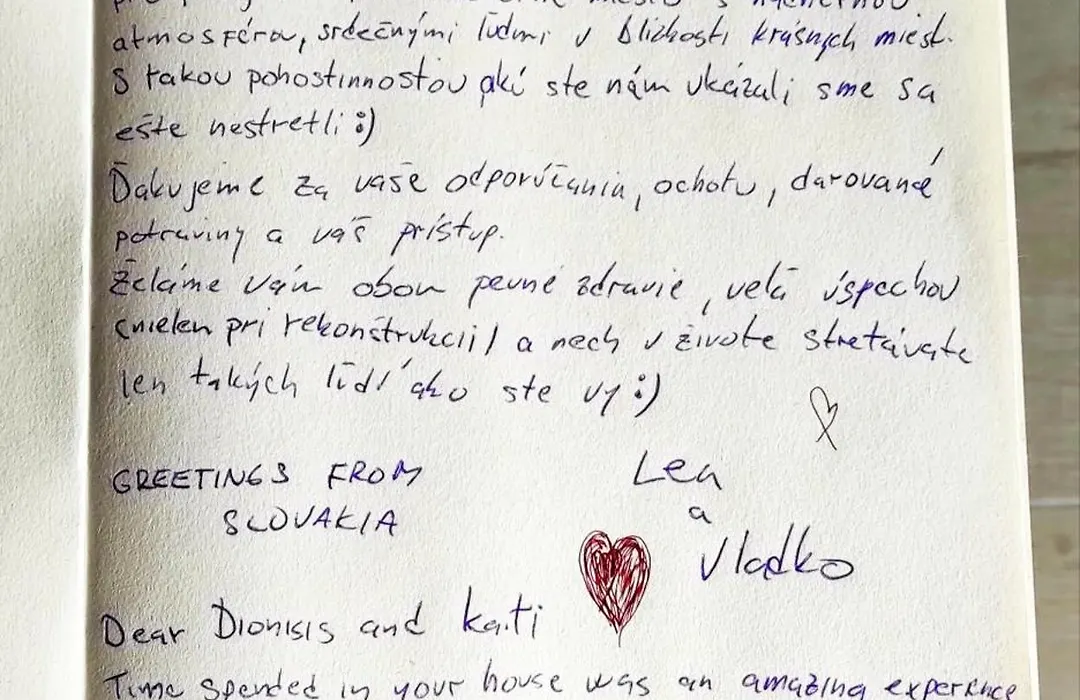 miesto s
atmosféra, srdečnými ľuďmi v blízkosti krásnych miest.
S takou pohostinnosťou akú ste nám ukázali sme sa
ešte nestretli :)
Ďakujeme za vaše odporúčania, ochotu, darované
potraviny a váš prístup.
Želáme vám obom pevné zdravie, veľa úspechov
(nielen pri rekonštrukcii) a nech v živote stretávate
len takých ľudí ako ste vy :)
GREETINGS FROM
SLOVAKIA
Lea
a
Vladko
Dear Dionisis and Kati
Time spended in your house was an amazing experience